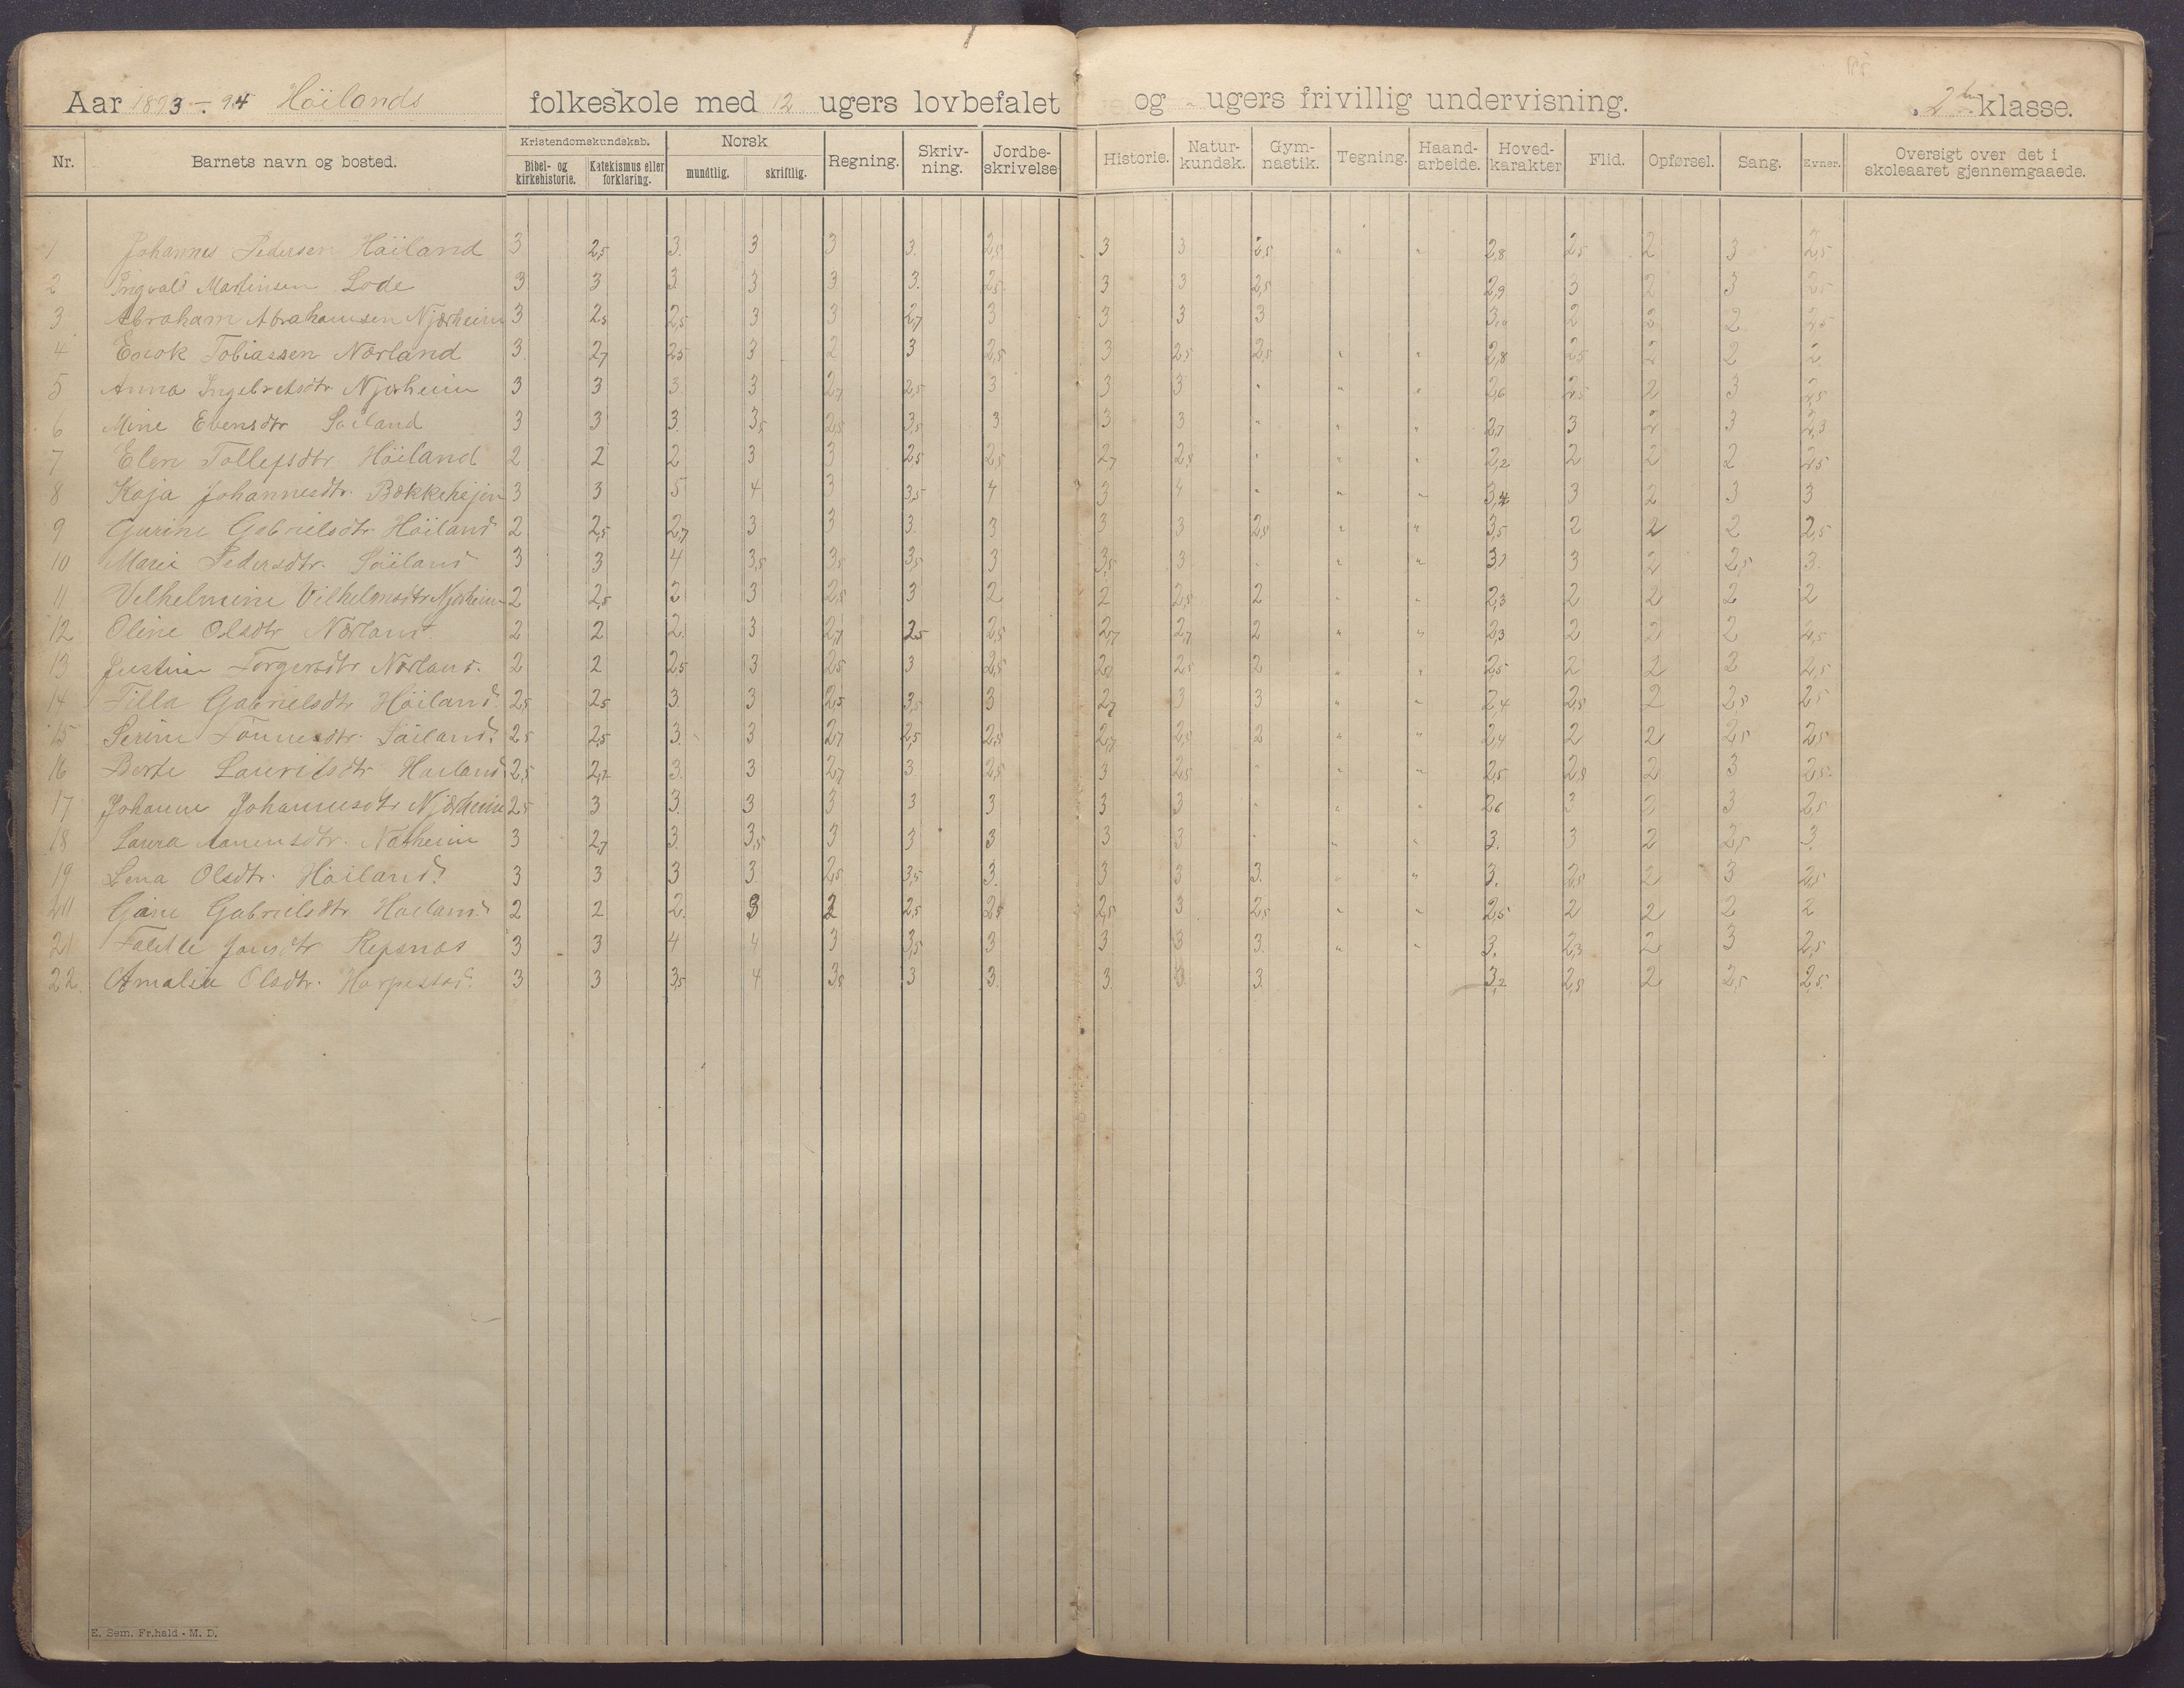 Aar 1893 - 94 Höilands folkeskole med 12 ugers lovbefalet og - ugers frivillig undervisning. 2den klasse.
Nr. Barnets navn og bosted. Kristendomskundskab. Bibel- og kirkehistorie. Katekismus eller forklaring. Norsk mundtlig. skriftlig. Regning. Skriv-ning. Jordbe-skrivelse Historie. Natur-kundsk. Gym-nastik. Tegning. Haand-arbeide. Hoved-karakter Flid. Opførsel. Sang. Evner. Oversigt over det i skoleaaret gjennemgaaede.
1 Johannes Pedersen Höiland 3 2,5 3. 3 3 3. 2,5 3 3 2,5 " " 2,8 2,5 2 3 2,5
2 Ingvald Martinsen Lode 3 3 3 3 3 3. 2,5 3 3 2,5 2,9 3 2 3 2,5
3 Abraham Abrahamsen Njærheim 3 2,5 2,5 3 3 2,7 3 3 3 3 3,0 2 2 2 2,5
4 Enok Tobiassen Nærland 3. 2,7 2,5 3 2 3 2,5 3 2,5 2,5 " " 2,8 2,5 2 2 2
5 Anna Ingebretsdtr Njærheim 3 3 3. 3 2,7 2,5 3 3 3 " " " 2,6 2,5 2 3 2,5
6 Mine Evensdtr Söiland 3 3 3. 3,5 2,5 3,5 3 3 3 " " " 2,7 3 2 3 2,3
7 Elen Tollefsdtr Höiland 2 2 2 3 3 2,5 2,5 2,7 2,5 " " " 2,2 2 2 2 2,5
8 Kaja Johannesdtr. 3 3 5 4 3 3,5 4 3 4 " " " 3,4 3 2 3 3
9 Gurine Gabrielsdtr Höiland 2 2,5 2,7 3 3 3. 3 3 3 2,5 " " 3,5 2 2 2 2,5
10 Marie Pedersdtr. Söiland 3 3 4 3,5 3,5 3,5 3 3,5 3 " " " 3,1 3 2 2,5 3.
11 Velhelmine Vilhelmsdtr Njærheim 2 2,5 2 3 2,5 3 2 2 2,5 2 " " 2,3 2 2 2 2
12 Oline Olsdtr Nærland 2 2 2. 3 2,7 2,5 2,5 2,7 2,7 2 " " 2,3 2 2 2 2,5
13 Justine Torgersdtr Nærland. 2 2 2,5 3 2,5 3 2,5 2,5 2 " " 2,5 2 2 2 2,5
14 Tilla Gabrielsdtr Höiland 2,5 2,5 3. 3 2,5 3,5 3 2,7 3 3 " " 2,4 2,5 2 2,5 2,5
15 Serine Tönnesdtr. Söiland. 2,5 2,5 3. 3 2,7 2,5 2,5 2,7 2,5 2 " " 2,4 2 2 2,5 2,5
16 Berte Lauritsdtr Höiland 2,5 2,7 3. 3 2,7 3. 2,5 3 2,5 " " " 2,5 2,5 2 3 2,5.
17 Johanne Johannesdtr Njærheim 2,5 3 3. 3 3 3 3 3 3 " " " 2,6 3 2 3 2,5
18 Laura 3 2,7 3. 3,5 3 3 3 3 3 " " " 3. 3 2 2,5 3.
19 Lena Olsdtr. Höiland. 3 3 3 3 2,5 3,5 3. 3 3 3. " " 3. 2,5 2 3 2,5
20 Gine Gabrielsdtr Höiland 2 2 2. 3 2 2,5 2,5 2,5 3 2,5 " " 2,5 2 2 2 2
21 Jonsdtr Refsnæs 3 3 4 4 3 3,5 3 3. 3 3. " " 3. 2,3 2 3 2,5
22. Amalie Olsdtr. Harpestad. 3 3 3,5 4 3,5 3 3. 3. 3. 3. 3,2 2,5 2 2,5 2,5.
E. Sem. Fr.hald - M. D.